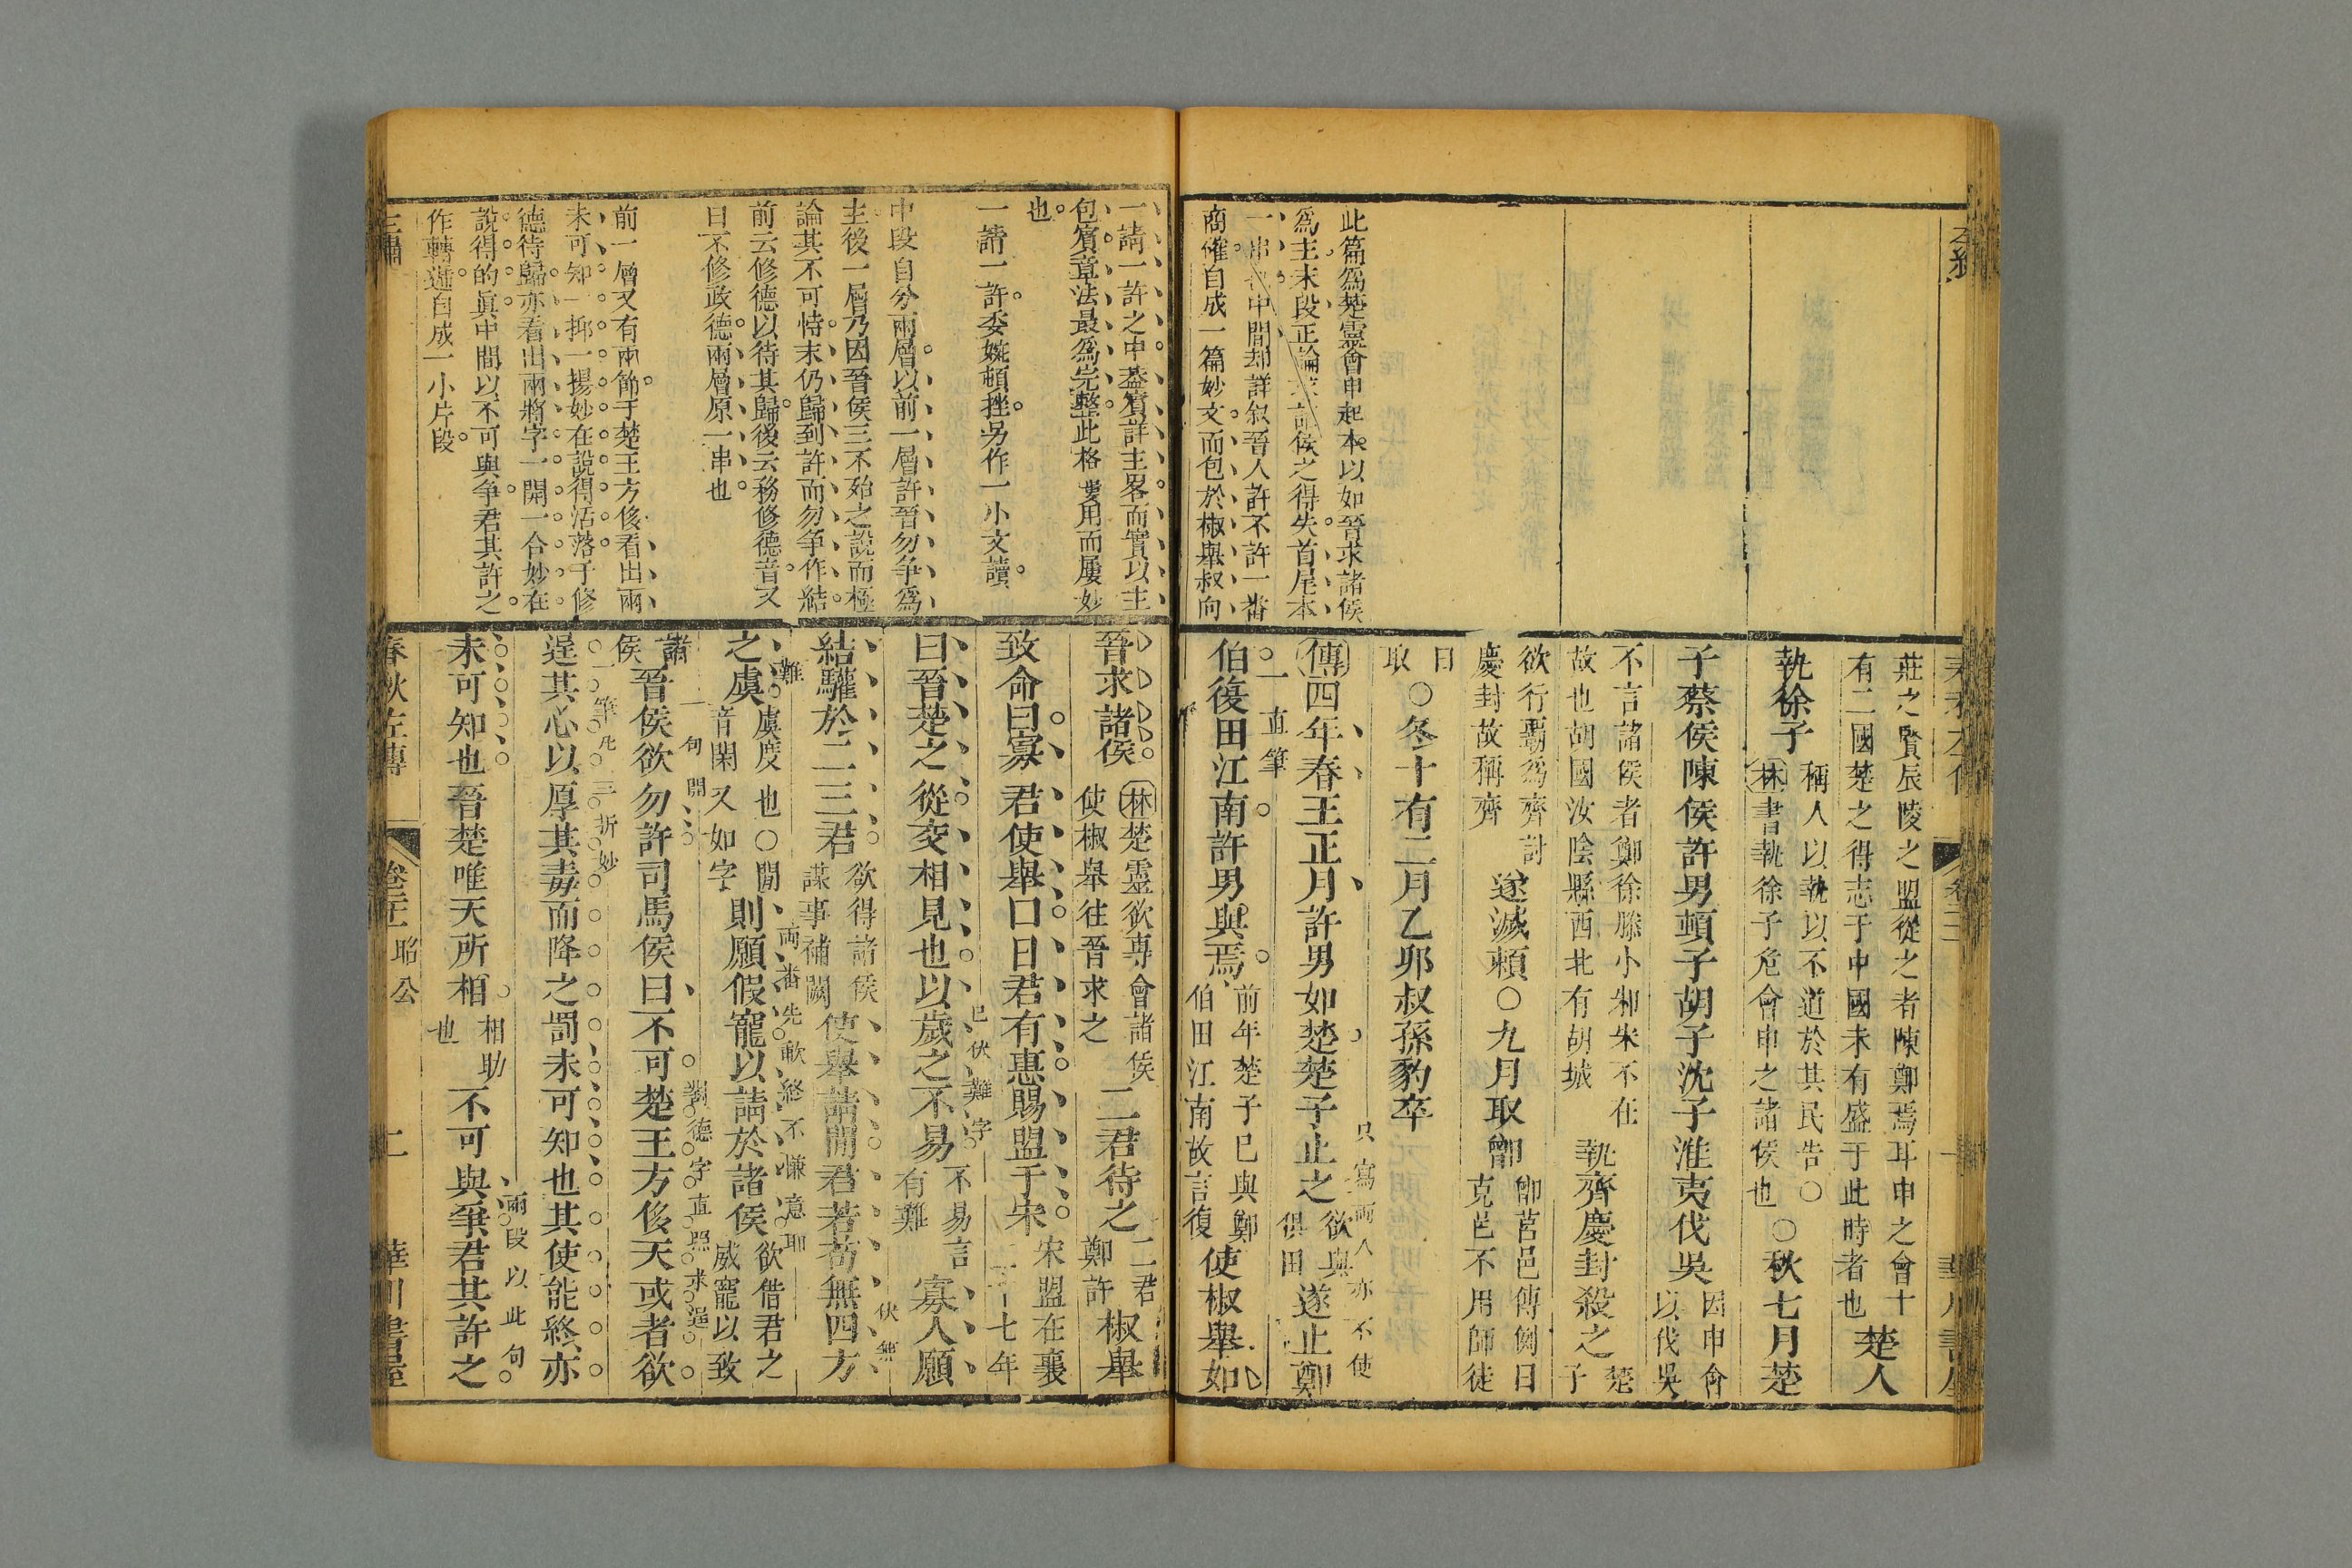 此篇為楚靈會申起本以如晉求諸侯
為主末段正論諸侯之得失首尾本
一串中間却詳叙晉人許不許一番
商傕自成一篇妙文而包於椒舉叔向
莊之賢辰陵之盟從之者陳鄭焉耳申之會十
有二國楚之得志于中國未有盛于此時者也
楚人
執徐子
稱人以執以不道於其民告○
林書執徐子危會申之諸侯也
○秋七月楚
子蔡侯陳侯許男頓子胡子沈子淮夷伐吳
因申會
以伐吳
不言諸侯者鄭徐滕小邾宋不在
故也胡國汝陰縣西北有胡城
執齊慶封殺之
楚子
欲行霸為齊討
慶封故稱齊
遂滅賴○九月取鄫
鄫莒邑傳例曰
克邑不用師徒
曰
取
○冬十有二月乙卯叔孫豹卒
傳四年春王正月許男如楚楚子止之
欲與
俱田
遂止鄭
只寫兩人亦不使
一直筆
伯復田江南許男與焉
前年楚子已與鄭
伯田江南故言復
使椒舉如
一請一許之中蓋賓詳主畧而實以主
包賓章法最為完整此格婁用而屢妙
也
一請一許委婉頓挫另作一小文讀
中段自分兩層以前一層許晉勿争為
主後一層乃因晉侯三不殆之說而極
論其不可恃末仍歸到許而勿争作結
前云修德以待其歸後云務修德音又
曰不修政德兩層原一串也
前一層又有兩節于楚王方侈看出兩
未可知一抑一揚妙在說得活落于修
德待歸亦看出兩將字一開一合妙在
說得的眞中間以不可與争君其許之
作轉遞自成一小片段
晉求諸侯
林楚靈欲專會諸侯
使椒舉往晉求之
二君待之
二君
鄭許
椒舉
致命曰寡君使舉曰日君有惠賜盟于宋
宋盟在襄
二十七年
曰晉楚之從交相見也以歲之不易
不易言
有難
寡人願
已伏難字
結驩於二三君
欲得諸侯
謀事補闕
使舉請間君若苟無四方
伏無
難
之虞
虞度也○閒
音閑又如字
則願假寵以請於諸侯
欲借君之
威寵以致
諸
侯
兩番先歉終不慊意耶
一句開
晉侯欲勿許司馬侯曰不可楚王方侈天或者欲
對德字直照求逞
一筆凡三折妙
逞其心以厚其毒而降之罰未可知也其使能終亦
未可知也晉楚唯天所相
相助
也
不可與爭君其許之
兩段以此句
春秋左傳
卷三十
昭公
二
華川書屋